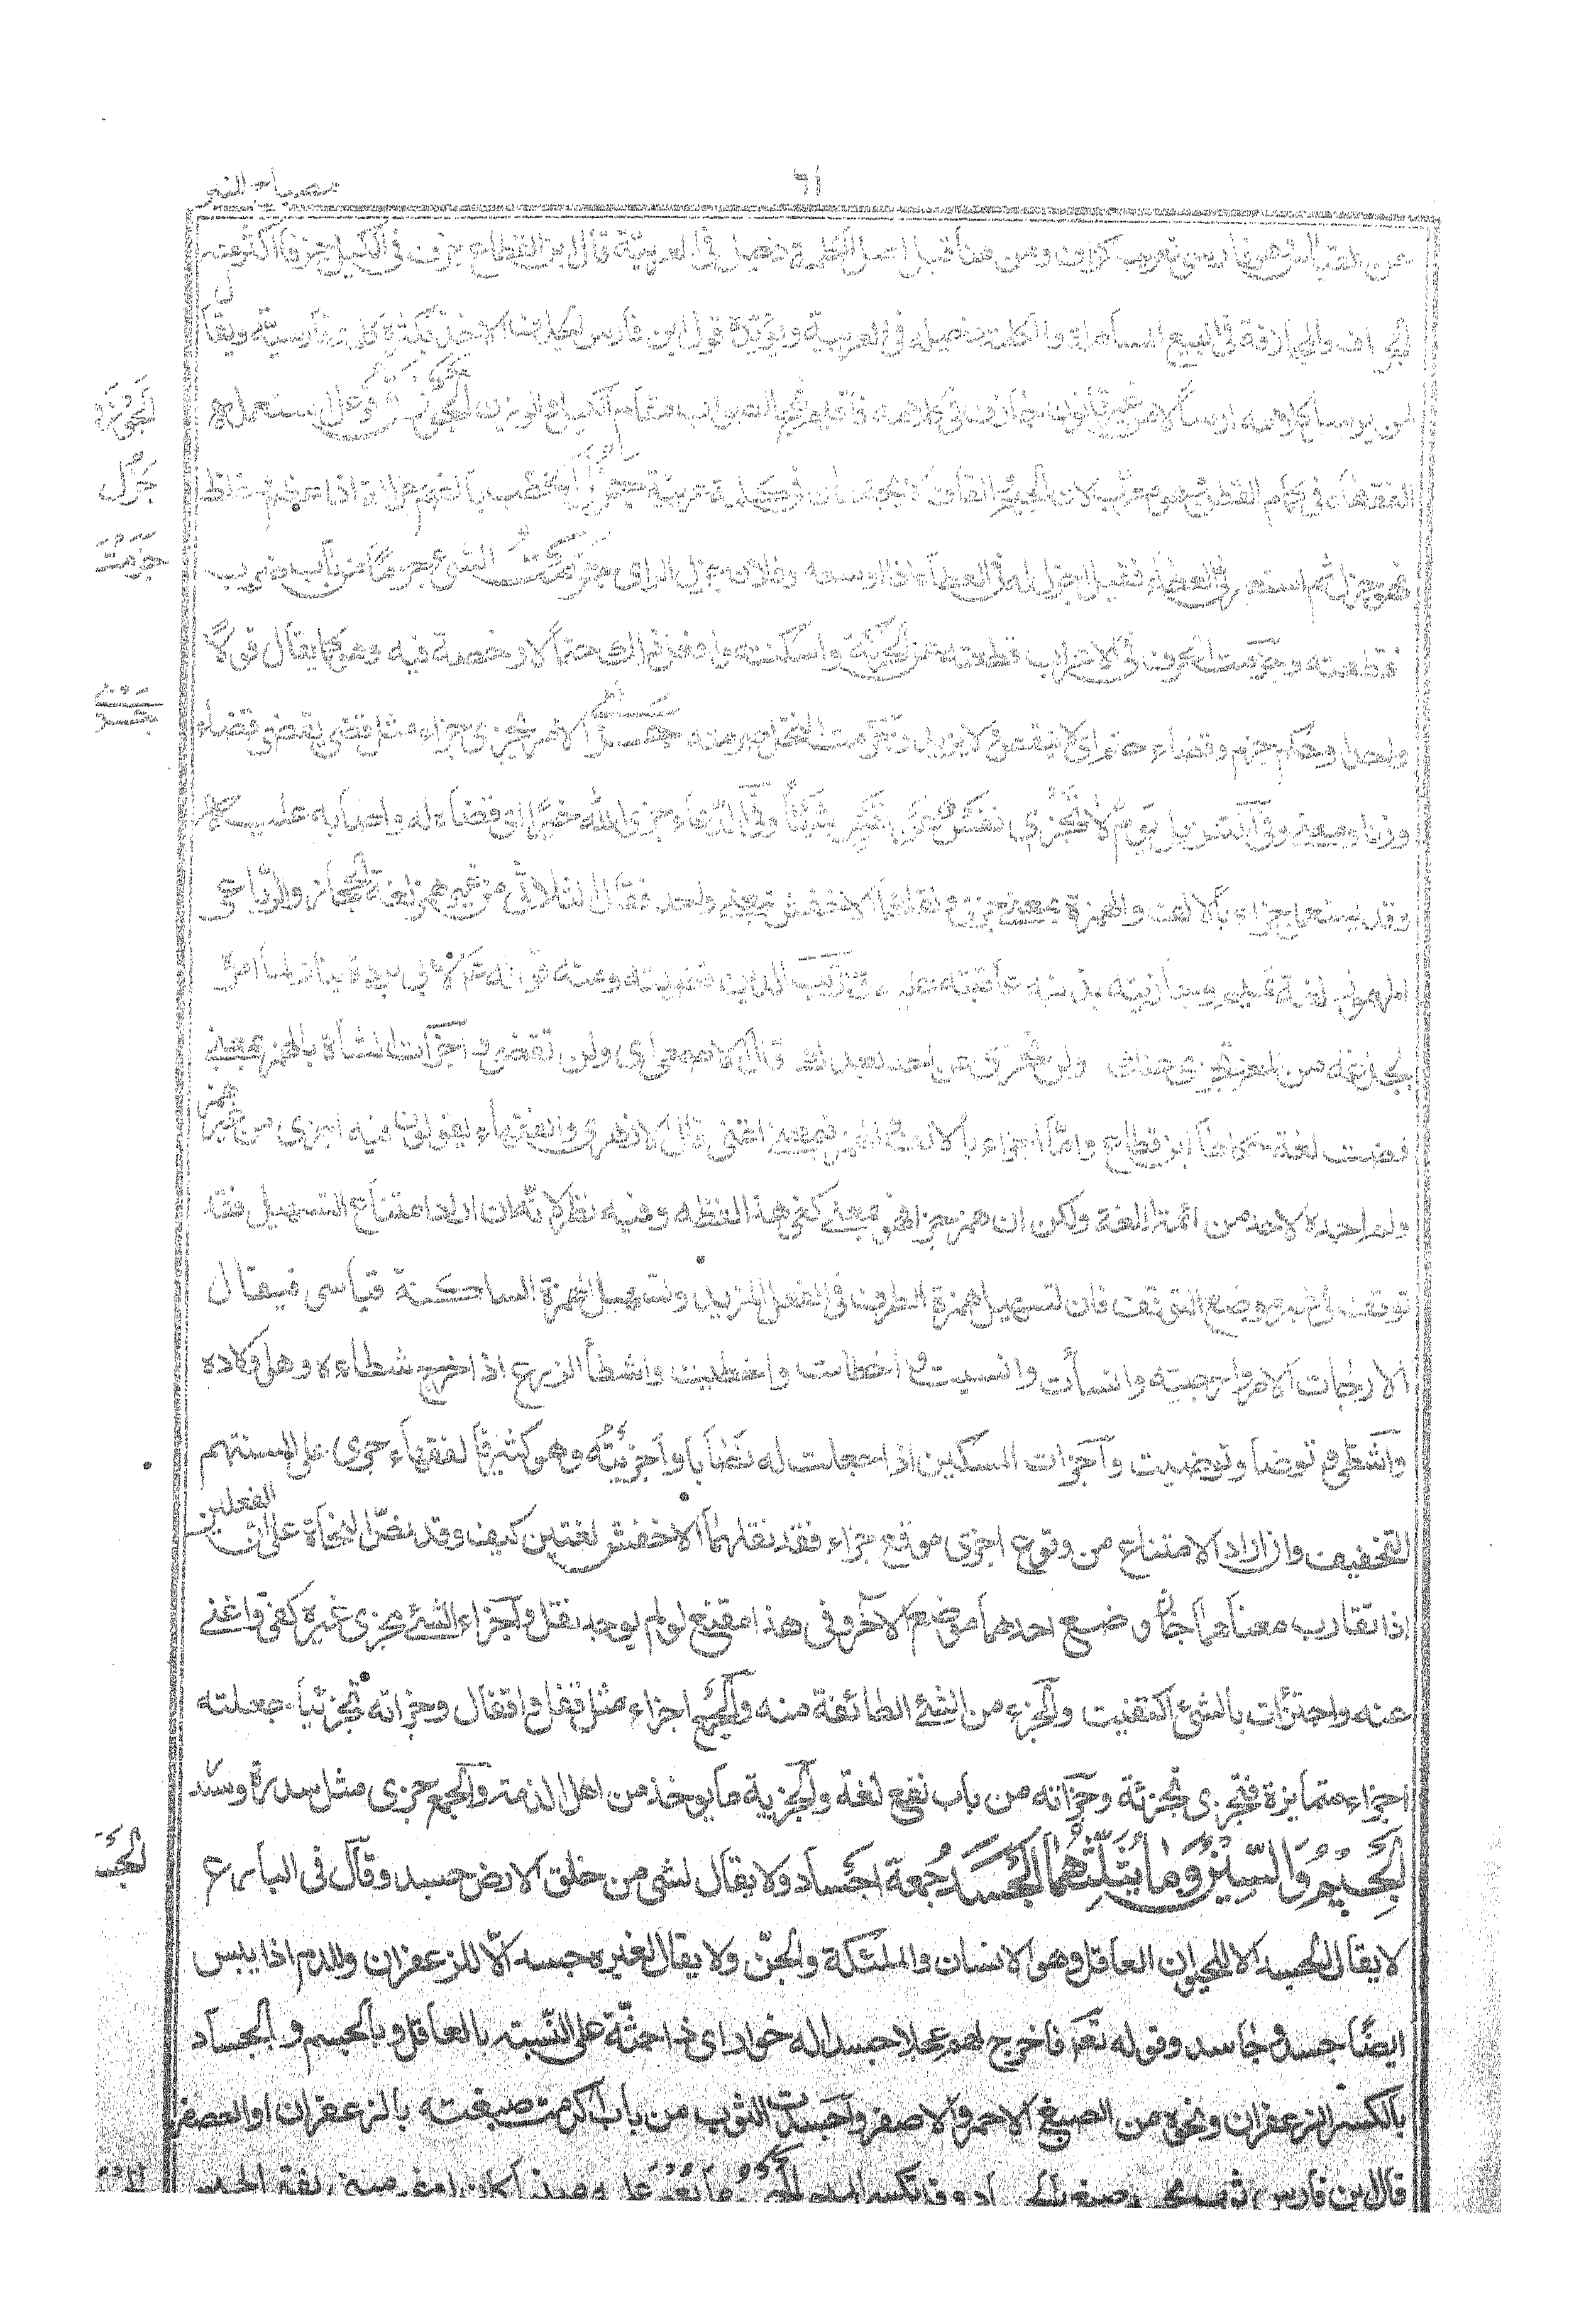 ٦١
مصباح المنير
فارسى تعريب كزاف ومن هنا قيل اصل الكلمة دخيل فى العربية قال ابن القطاع جزف فى الكيل جزفا اكثر منه
الجزاف والمجازفة فى البيع المساهلة والكلمة دخيلة فى العربية ويؤيده قول ابن فارس الاخذ بكثرة كلمة فارسية ويقال
لمن يرسل كلامه ارسالا من غير قانون جازف فى كلامه فاقام نهج الصواب مقام الكيل والوزن الجوز
الجوزق
الفقهاء فى كمام القطن وهو معرب لان الجيم والقاف لا يجتمعان فى كلمة عربية جزل الحطب بالضم جزالة اذا عظم وغلظ
جزل
فهو جزل ثم استعير فى العطاء فقيل اجزل له فى العطاء اذا اوسعه وفلان جزل الراى جزمت الشئ جزما من باب ضرب
جزمت
قطعته وجزمت الحرف فى الاعراب قطعته عن الحركة واسكنته وافعل ذلك جزما اى حتما لا رخصة فيه وهو كما يقال قولا
واحدا وحكم جزم وقضاء حتم اى لا ينقض ولا يرد وجزمت النخل صرمته جزى الامر يجزى جزاء مثل قضى يقضى قضاء
وزنا ومعنى وفى التنزيل يوم لا تجزى نفس عن نفس شيئا وفى الدعاء جزاه الله خيرا اى قضاه له واصابه عليه
وقد يستعمل اجزاء بالالف والهمزة بمعنى جزى ونقلهما الاخفش بمعنى واحد فقال الثلاثى من غير همز لغة الحجاز والرباعى
المهموز لغة تميم وجازيته بذنبه عاقبته عليه وجزيت الدين قضيته ومنه قوله عم لابى بردة بن نيار لما امره
بجذعة من المعز تجزى عنك ولن تجزى عن احد بعدك قال الاصمعى اى ولن تقضى واجزات الشاة بالهمز بمعنى
قضت لغة حكاها ابن قطاع واما اجزاء بالالف والهمز فبمعنى اغنى قال الازهرى والفقهاء يقولون فيه اجزى من غير همز
ولم اجده لاحد من ائمة اللغة ولكن ان همز اجزا فهو بمعنى كفى هذا لفظه وفيه نظر لانه ان اراد امتناع التسهيل فقد
توقف فى غير موضع التوقف فان تسهيل همزة الطرف فى الفعل المزيد وتسهيل الهمزة الساكنة قياسى فيقال
الارجات الامر وارجيته وانسات وانسيت و اخطات واخطيت واشطا الزرع اذا اخرج شطاءه وهى اولاده
واشطى و توضا وتوضيت واجزات السكين اذا جعلت له نصابا واجزيته وهو كثير فالفقهاء جرى على السنتهم
التخفيف وان اراد الامتناع من وقوع اجزى موقع جزاء فقد نقلهما الاخفش لغتين كيف وقد نص النحاة على ان الفعلين
اذا تقارب معناهما جاز وضع احدهما موضع الآخر وفى هذا مقنع لو لم يوجد نقل واجزاء الشئ مجزى غيره كفى واغنى
عنه واجتزات بالشئ اكتفيت والجزء من الشئ الطائفة منه والجمع اجزاء مثل قفل واقفال وجزاته تجزئيا جعلته
اجزاء متمايزة فتجزى تجزئة وجزاته من باب نفع لغة والجزية ما يوخذ من اهل الذمة والجمع جزى مثل سدرة وسدر
الجيم والسين وما يثلثهما الجسد جمعة اجساد ولا يقال لشى من خلق الارض جسد وقال فى البارع
الجسد
لا يقال الجسد الا للحيوان العاقل وهو الانسان والملئكة والجن ولا يقال لغيره جسد الا للزعفران وللدم اذا يبس
ايضا جسد وجاسد وقوله تعم فاخرج لهم عجلا جسدا له خوار اى ذا جثة على التشبيه بالعاقل وبالجسم و الجساد
بالكسر الزعفران ونحوه من الصبغ الاحمر والاصفر واجسدت الثوب من باب اكرمت صبغته بالزعفران او العصفر
قال ابن فارس ثوب